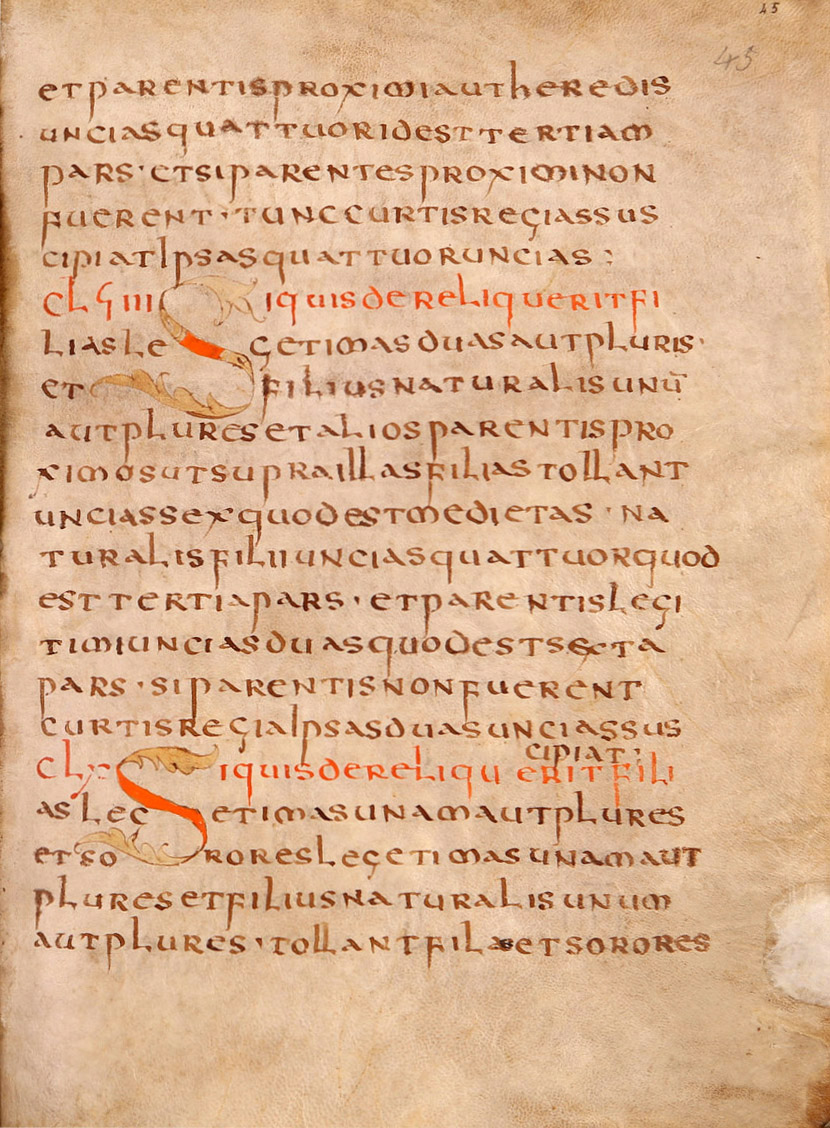 45
45
et parentis proximi aut heredis
uncias quattuor id est tertiam
pars · et si parentes proximi non
fuerent · tunc curtis regia sus
cipiat ipsas quattuor uncias :
clϛiii Si quis dereliquerit fi
lias legetimas duas aut pluris ·
et filius naturalis unū
aut plures et alios parentis pro
ximos ut supra illas filias tollant
uncias sex quod est medietas · na
turalis filii uncias quattuor quod
est tertia pars · et parentis legi
timi uncias duas quod est sexta
pars · si parentis non fuerent
curtis regia ipsas duas uncias sus
cipiat :
clx Si quis dereliquerit fili
as legetimas unam aut plures
et sorores legetimas unam aut
plures et filius naturalis unum
aut plures · tollant filae et sorores